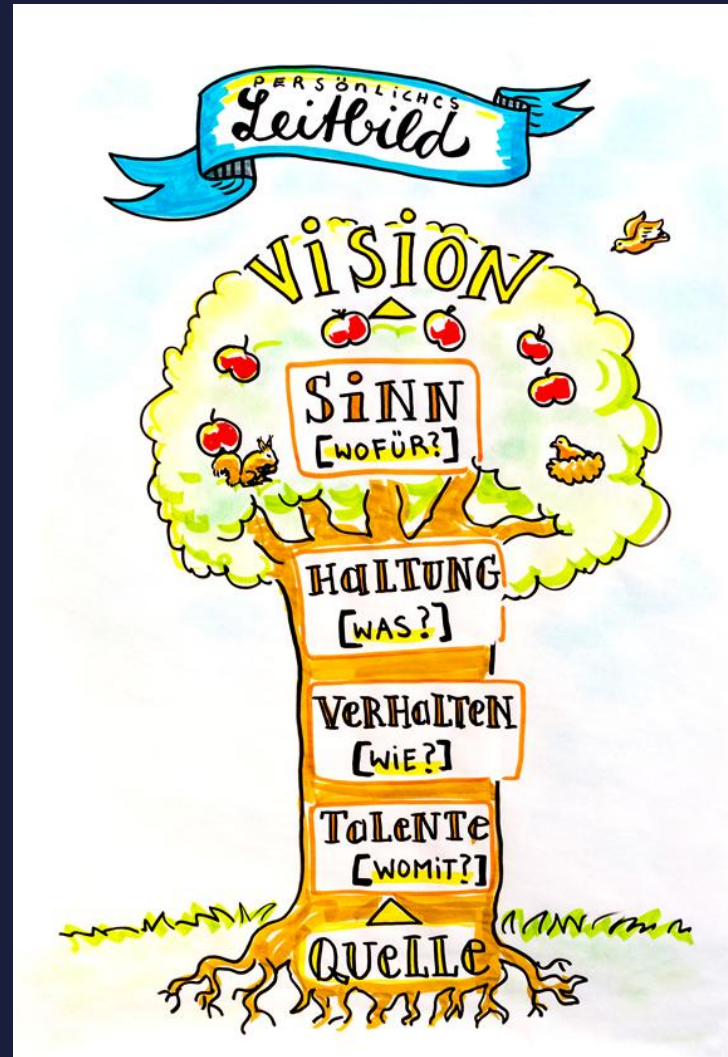 PERSÖNLICHES
Leitbild
ViSiON
SiNN
[WOFÜR?]
HaLTUNG
[WAS?]
VeRHaLTeN
[WiE?]
TaLeNTe
[WOMiT?]
QUeLLe